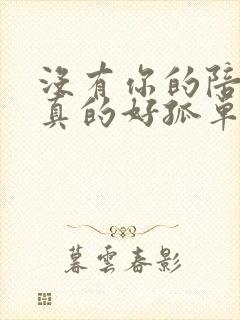 没有你的陪
真的好孤单
暮雲春影